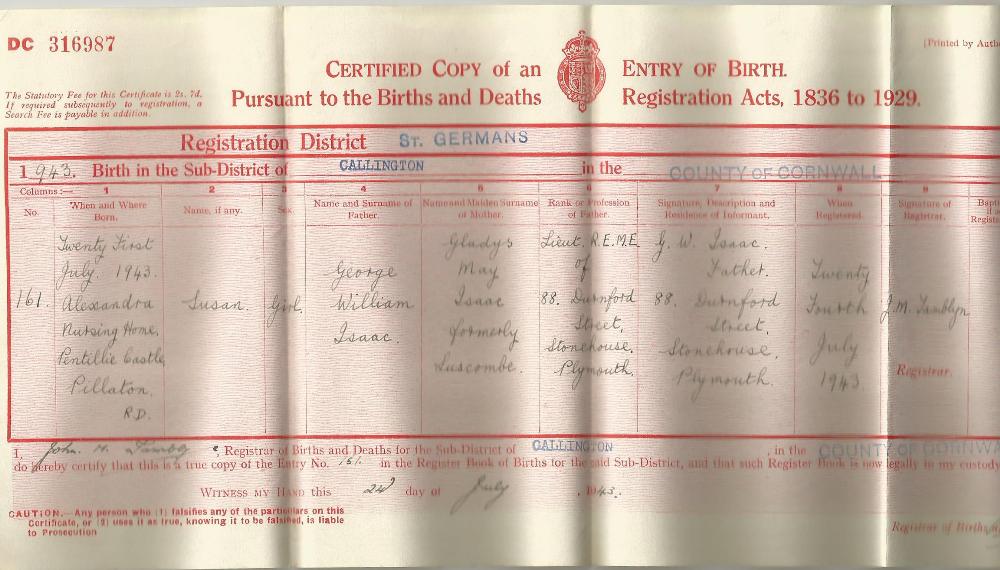 DC 316987
[Printed by Autho
CERTIFIED COPY of an ENTRY OF BIRTH.
Pursuant to the Births and Deaths Registration Acts, 1836 to 1929.
The Statutory Fee for this Certificate is 2s. 7d.
If required subsequently to registration, a
Search Fee is payable in addition.
Registration District ST. GERMANS
1943. Birth in the Sub-District of CALLINGTON in the COUNTY OF CORNWALL
Columns:— 1 2 3 4 5 6 7 8 9
No. When and Where Born. Name, if any. Sex. Name and Surname of Father. Name and Maiden Surname of Mother. Rank or Profession of Father. Signature, Description and Residence of Informant. When Registered. Signature of Registrar. Bapti
161.
Twenty First
July. 1943.
Alexandra
Nursing Home,
Pentillie Castle,
Pillaton.
R.D.
Susan.
Girl.
George
William
Isaac.
Gladys
May
Isaac
formerly
Luscombe.
Lieut. R.E.M.E
of
88. Durnford
Street,
Stonehouse.
Plymouth.
G. W. Isaac.
Father.
88. Durnford
Street,
Stonehouse,
Plymouth.
Twenty
Fourth
July
1943.
J.M. Tamblyn
Registrar.
I, John H. , Registrar of Births and Deaths for the Sub-District of CALLINGTON , in the COUNTY OF CORNWA
do hereby certify that this is a true copy of the Entry No. 161. in the Register Book of Births for the said Sub-District, and that such Register Book is now legally in my custody
WITNESS MY HAND this 24 day of July , 1943.
CAUTION.—Any person who (1) falsifies any of the particulars on this
Certificate, or (2) uses it as true, knowing it to be falsified, is liable
to Prosecution
Registrar of Births